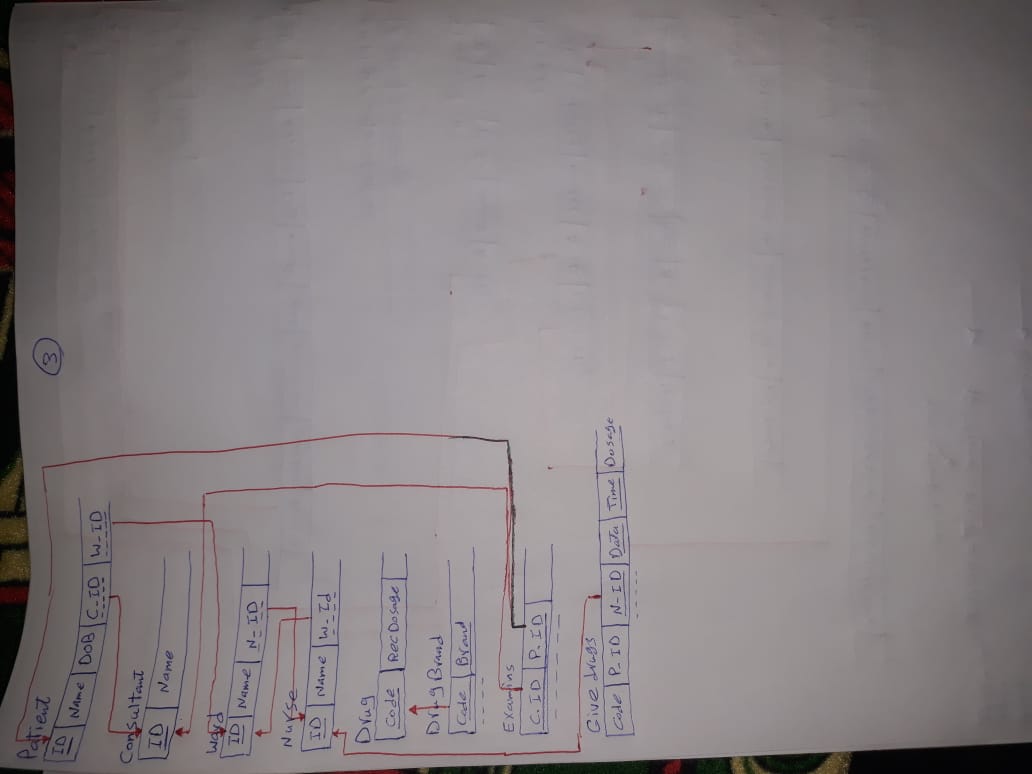 3
Patient
ID Name DOB C_ID W_ID
Consultant
ID Name
Ward
ID Name N_ID
Nurse
ID Name W_Id
Drug
Code RecDosage
Drug Brand
Code Brand
Examins
C.ID P.ID
Give drugs
Code P.ID N-ID Data Time Dosage